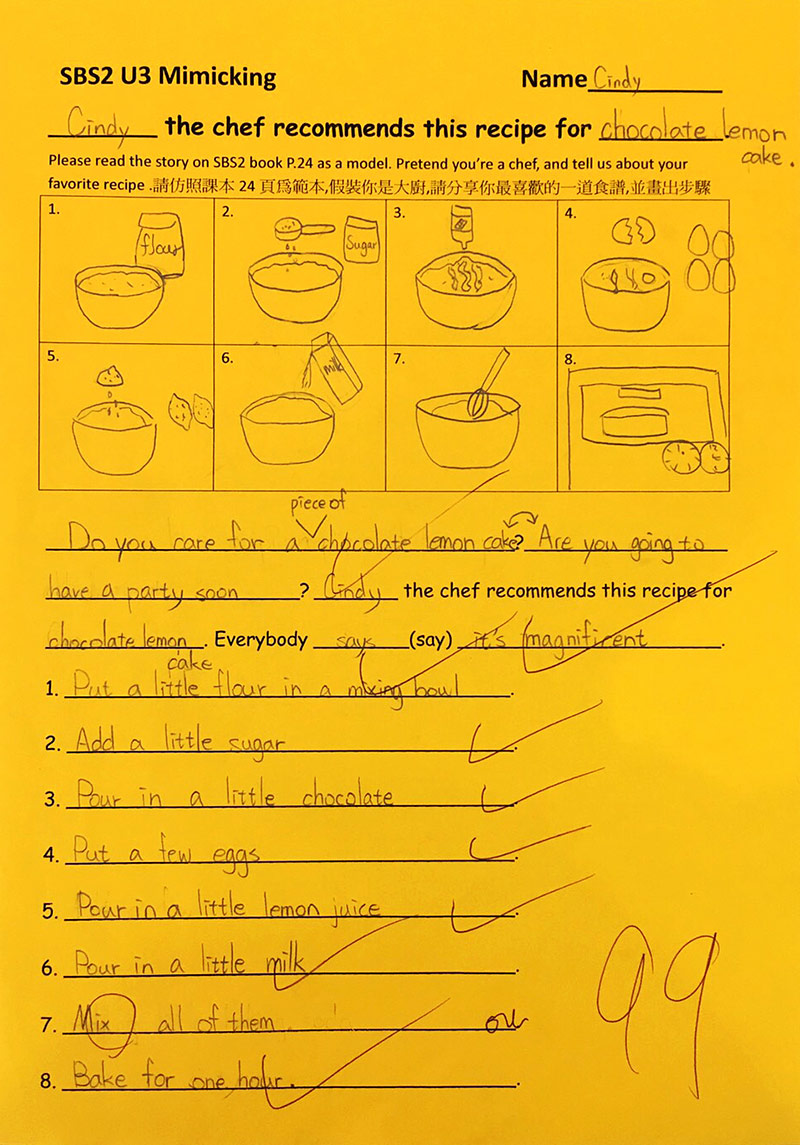 SBS2 U3 Mimicking Name Cindy
Cindy the chef recommends this recipe for chocolate lemon
cake.
Please read the story on SBS2 book P.24 as a model. Pretend you're a chef, and tell us about your
favorite recipe .請仿照課本 24 頁為範本,假裝你是大廚,請分享你最喜歡的一道食譜,並畫出步驟
1. 2. 3. 4.
flour Sugar
5. 6. 7. 8.
milk
piece of
Do you care for a chocolate lemon cake? Are you going to
have a party soon ? Cindy the chef recommends this recipe for
chocolate lemon . Everybody says (say) it's magnificent .
cake
1. Put a little flour in a mixing bowl .
2. Add a little sugar .
3. Pour in a little chocolate .
4. Put a few eggs .
5. Pour in a little lemon juice .
6. Pour in a little milk .
7. Mix all of them .
8. Bake for one hour. .
99